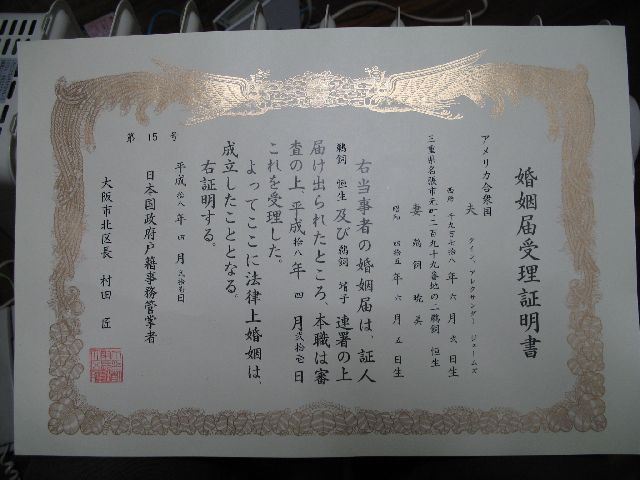 婚姻届受理証明書
アメリカ合衆国
夫 クイン、アレクサンダー ジェームズ
西暦 千九百七拾八年 六月 弐日生
三重県名張市元町二百九十九番地の二鵜飼 恒生
妻 鵜飼
昭和 四拾五年 六月 五日生
右当事者の婚姻届は、証人
鵜飼 恒生 及び 鵜飼 靖子 連署の上
届け出られたところ、本職は審
査の上、平成 拾八年 四月 弐拾壱日
これを受理した。
よってここに法律上婚姻は、
成立したこととなる。
右証明する。
平成 拾八年 四月 弐拾 日
第 15 号
日本国政府戸籍事務管掌者
大阪市北区長 村田 匠